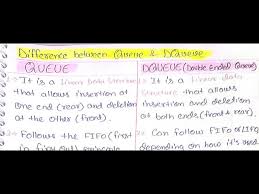 Difference between Queue & DQueue
QUEUE
1:- It is a linear data structure
that allows insertion at
one end (rear) and deletion
at the other (front).
2:- Follows the FIFO (first
in first out) principle
DQUEUE (Double Ended Queue)
1:- It is a linear data
structure that allows
insertion and deletion
at both ends (front & rear).
2:- Can follow FIFO or LIFO
depending on how it's used